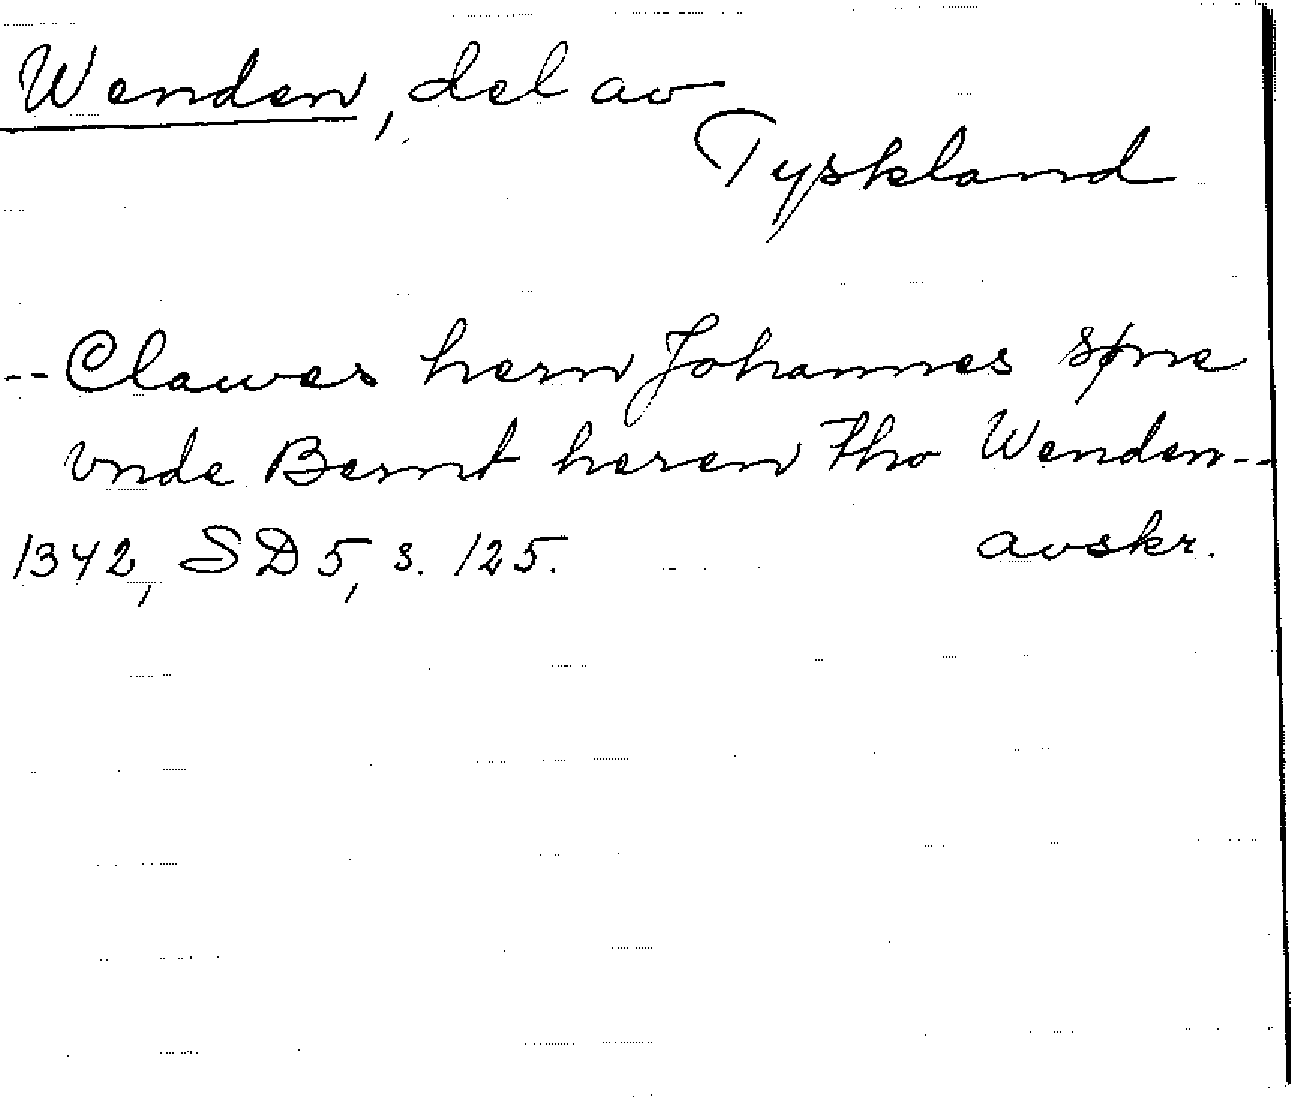 Wenden, del av
Tyskland
-- Clawes hern Johannes søne
vnde Bernt heren tho Wenden --
1342, SD 5, s. 125. avskr.